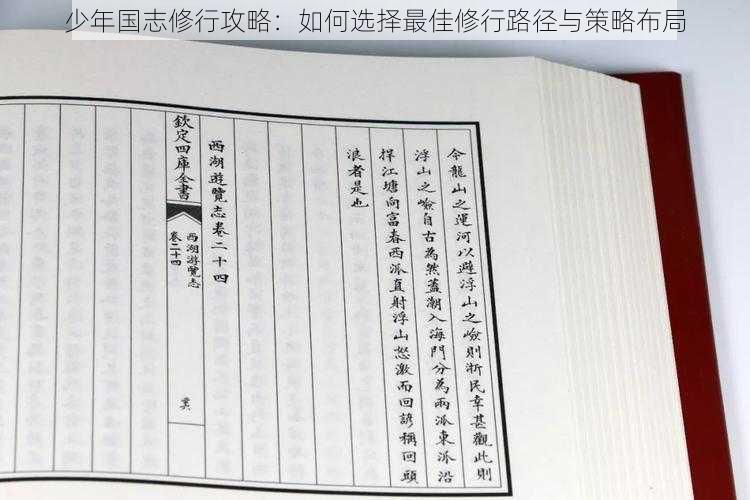 少年国志修行攻略：如何选择最佳修行路径与策略布局
令龍山之運河以避浮山之嶮則浙民幸甚觀此則
浮山之嶮自古為然蓋潮入海門分為兩派東派沿
捍江塘向富春西派直射浮山怒激而回諺稱回頭
浪者是也
西湖遊覽志卷二十四
欽定四庫全書
西湖遊覽志
卷二十四